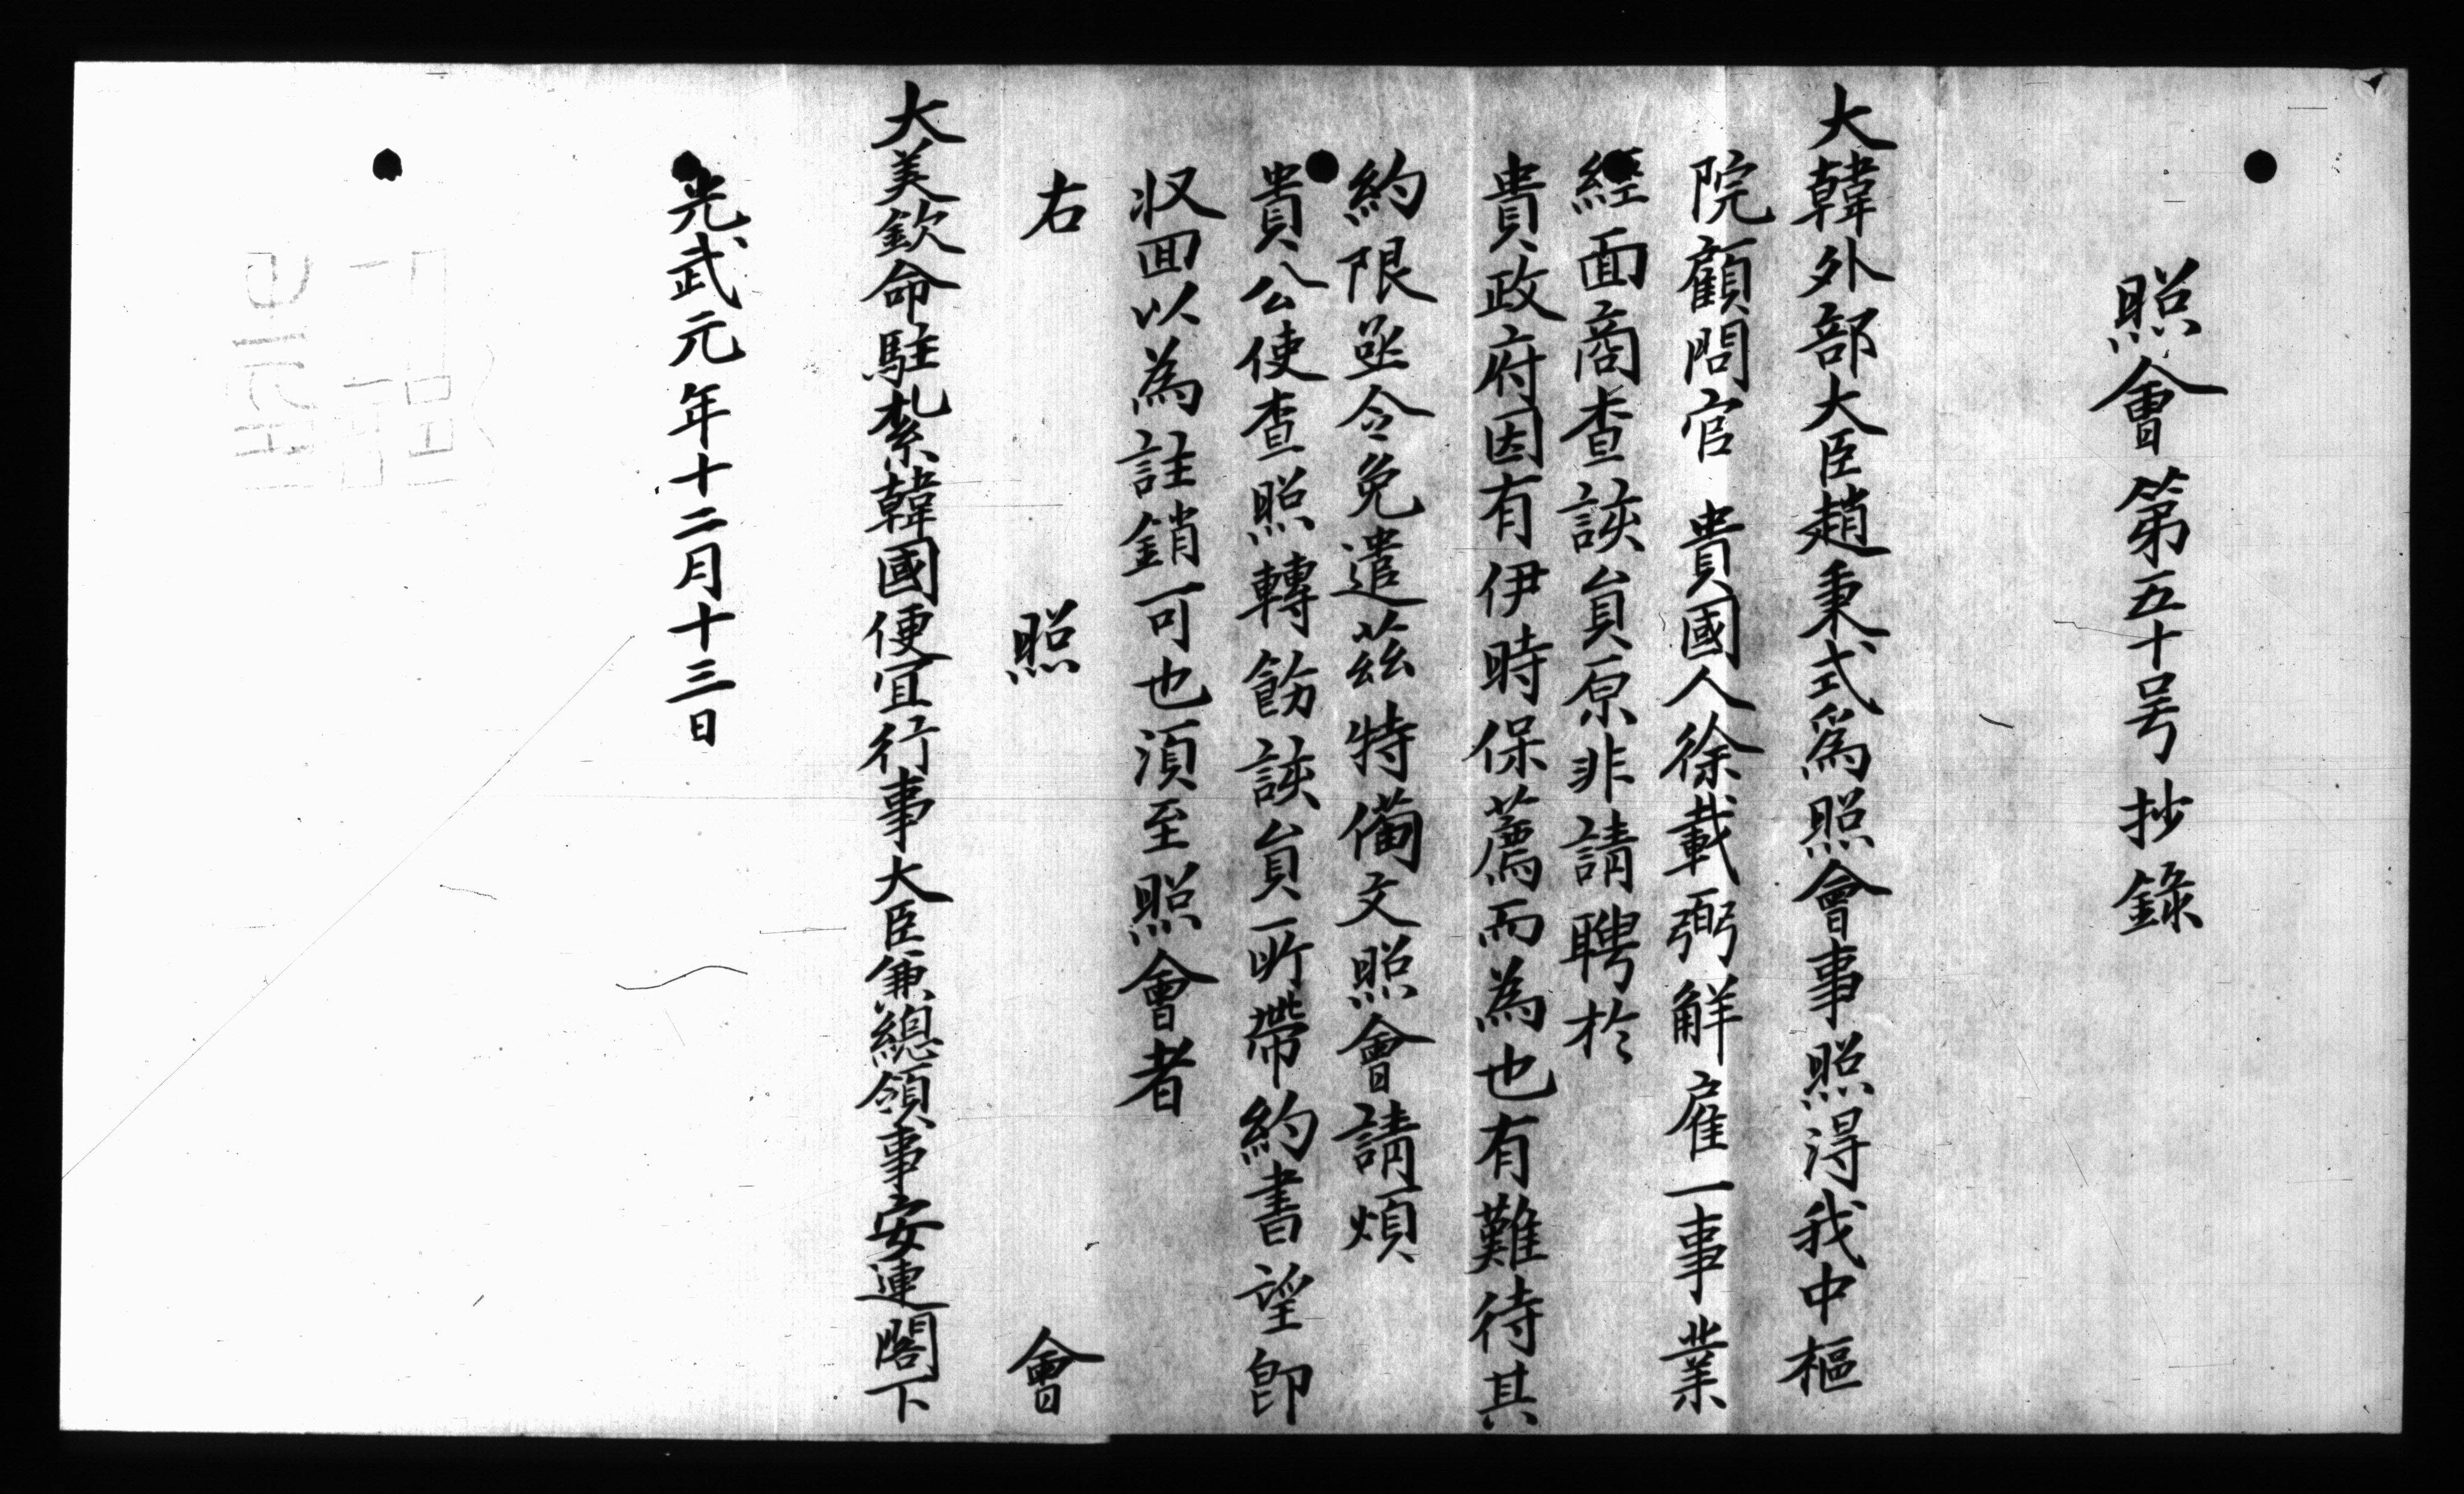 照會第五十号抄錄
大韓外部大臣趙秉式爲照會事照得我中樞
院顧問官 貴國人徐載弼觧雇一事業
經面商查該員原非請聘於
貴政府因有伊時保薦而為也有難待其
約限亟令免遣茲特備文照會請煩
貴公使查照轉飭該員所帶約書望即
収回以為註銷可也須至照會者
右 照 會
大美欽命駐紮韓國便宜行事大臣兼總領事安連閣下
光武元年十二月十三日